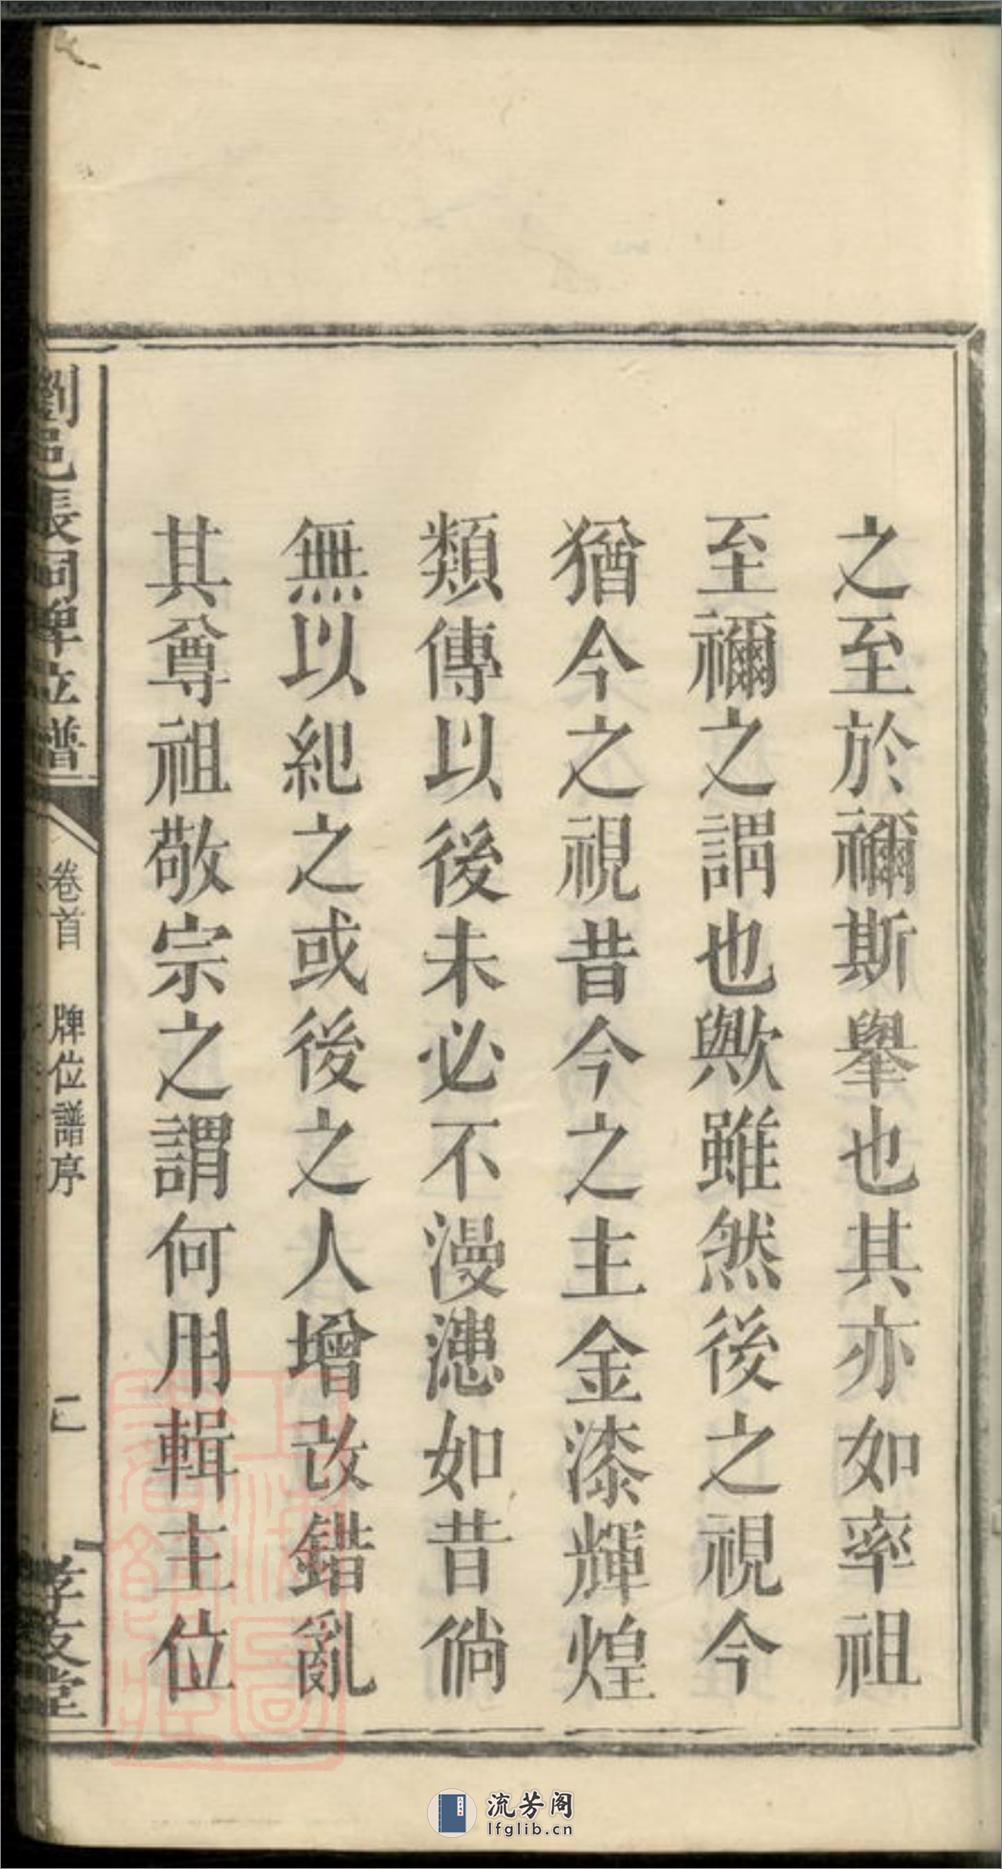 之至於禰斯舉也其亦如率祖
至禰之謂也歟雖然後之視今
猶今之視昔今之主金漆輝煌
類傳以後未必不漫漶如昔倘
無以紀之或後之人增改錯亂
其尊祖敬宗之謂何用輯主位
劉邑張祠牌位譜
卷首 牌位譜序
孝友堂
上海圖書館藏
流芳阁
lfglib.cn